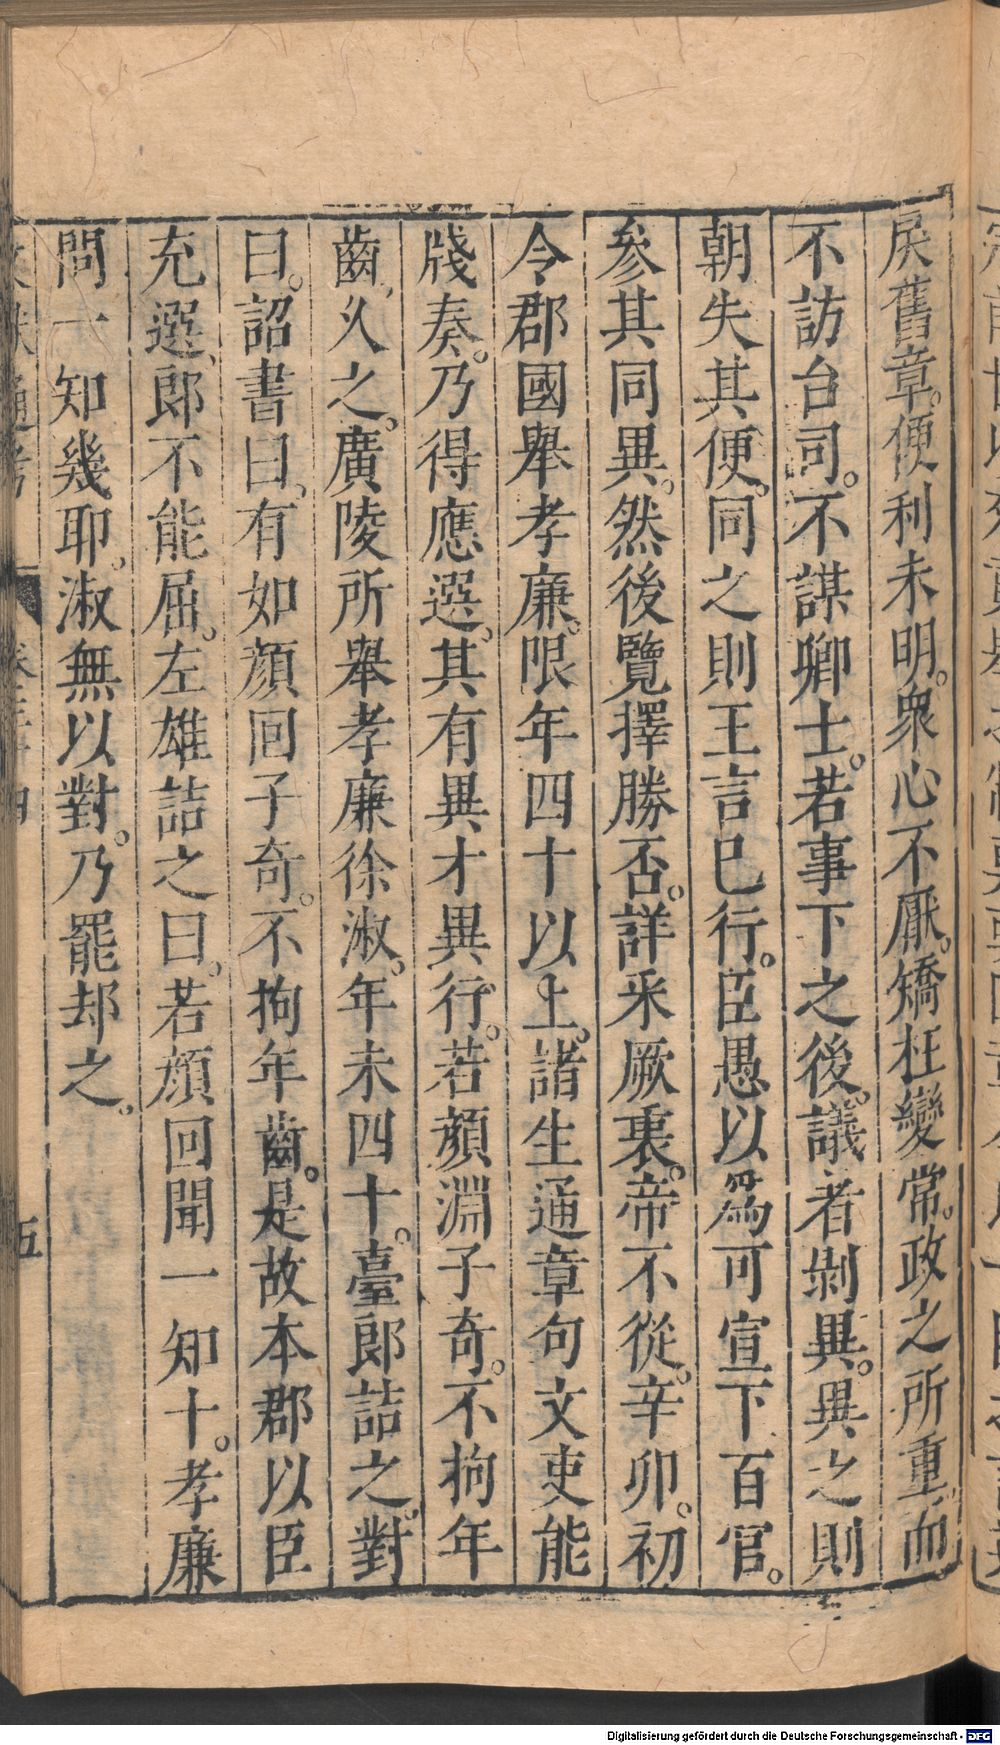 戾舊章。便利未明。衆心不厭。矯枉變常。政之所重。而
不訪台司。不謀卿士。若事下之後。議者剝異。異之則
朝失其便。同之則王言已行。臣愚以爲可宣下百官。
參其同異。然後覽擇勝否。詳采厥衷。帝不從。辛卯。初
令郡國舉孝廉。限年四十以上。諸生通章句文吏能
牋奏。乃得應選。其有異才異行。若顏淵子奇。不拘年
齒。久之。廣陵所舉孝廉徐淑。年未四十。臺郎詰之。對
曰。詔書曰。有如顏回子奇。不拘年齒。是故本郡以臣
充選。郎不能屈。左雄詰之曰。若顏回聞一知十。孝廉
問一知幾耶。淑無以對。乃罷却之。
通考
五
Digitalisierung gefördert durch die Deutsche Forschungsgemeinschaft - DFG